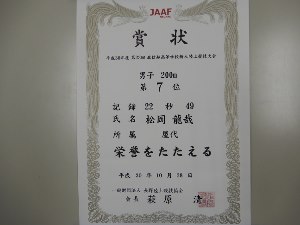 JAAF
賞状
男子 200m
第 7 位
記録 22 秒 49
氏名 松岡 龍哉
所属 屋代
栄誉をたたえる
平成 30 年 10 月 28 日
会長 萩原 清